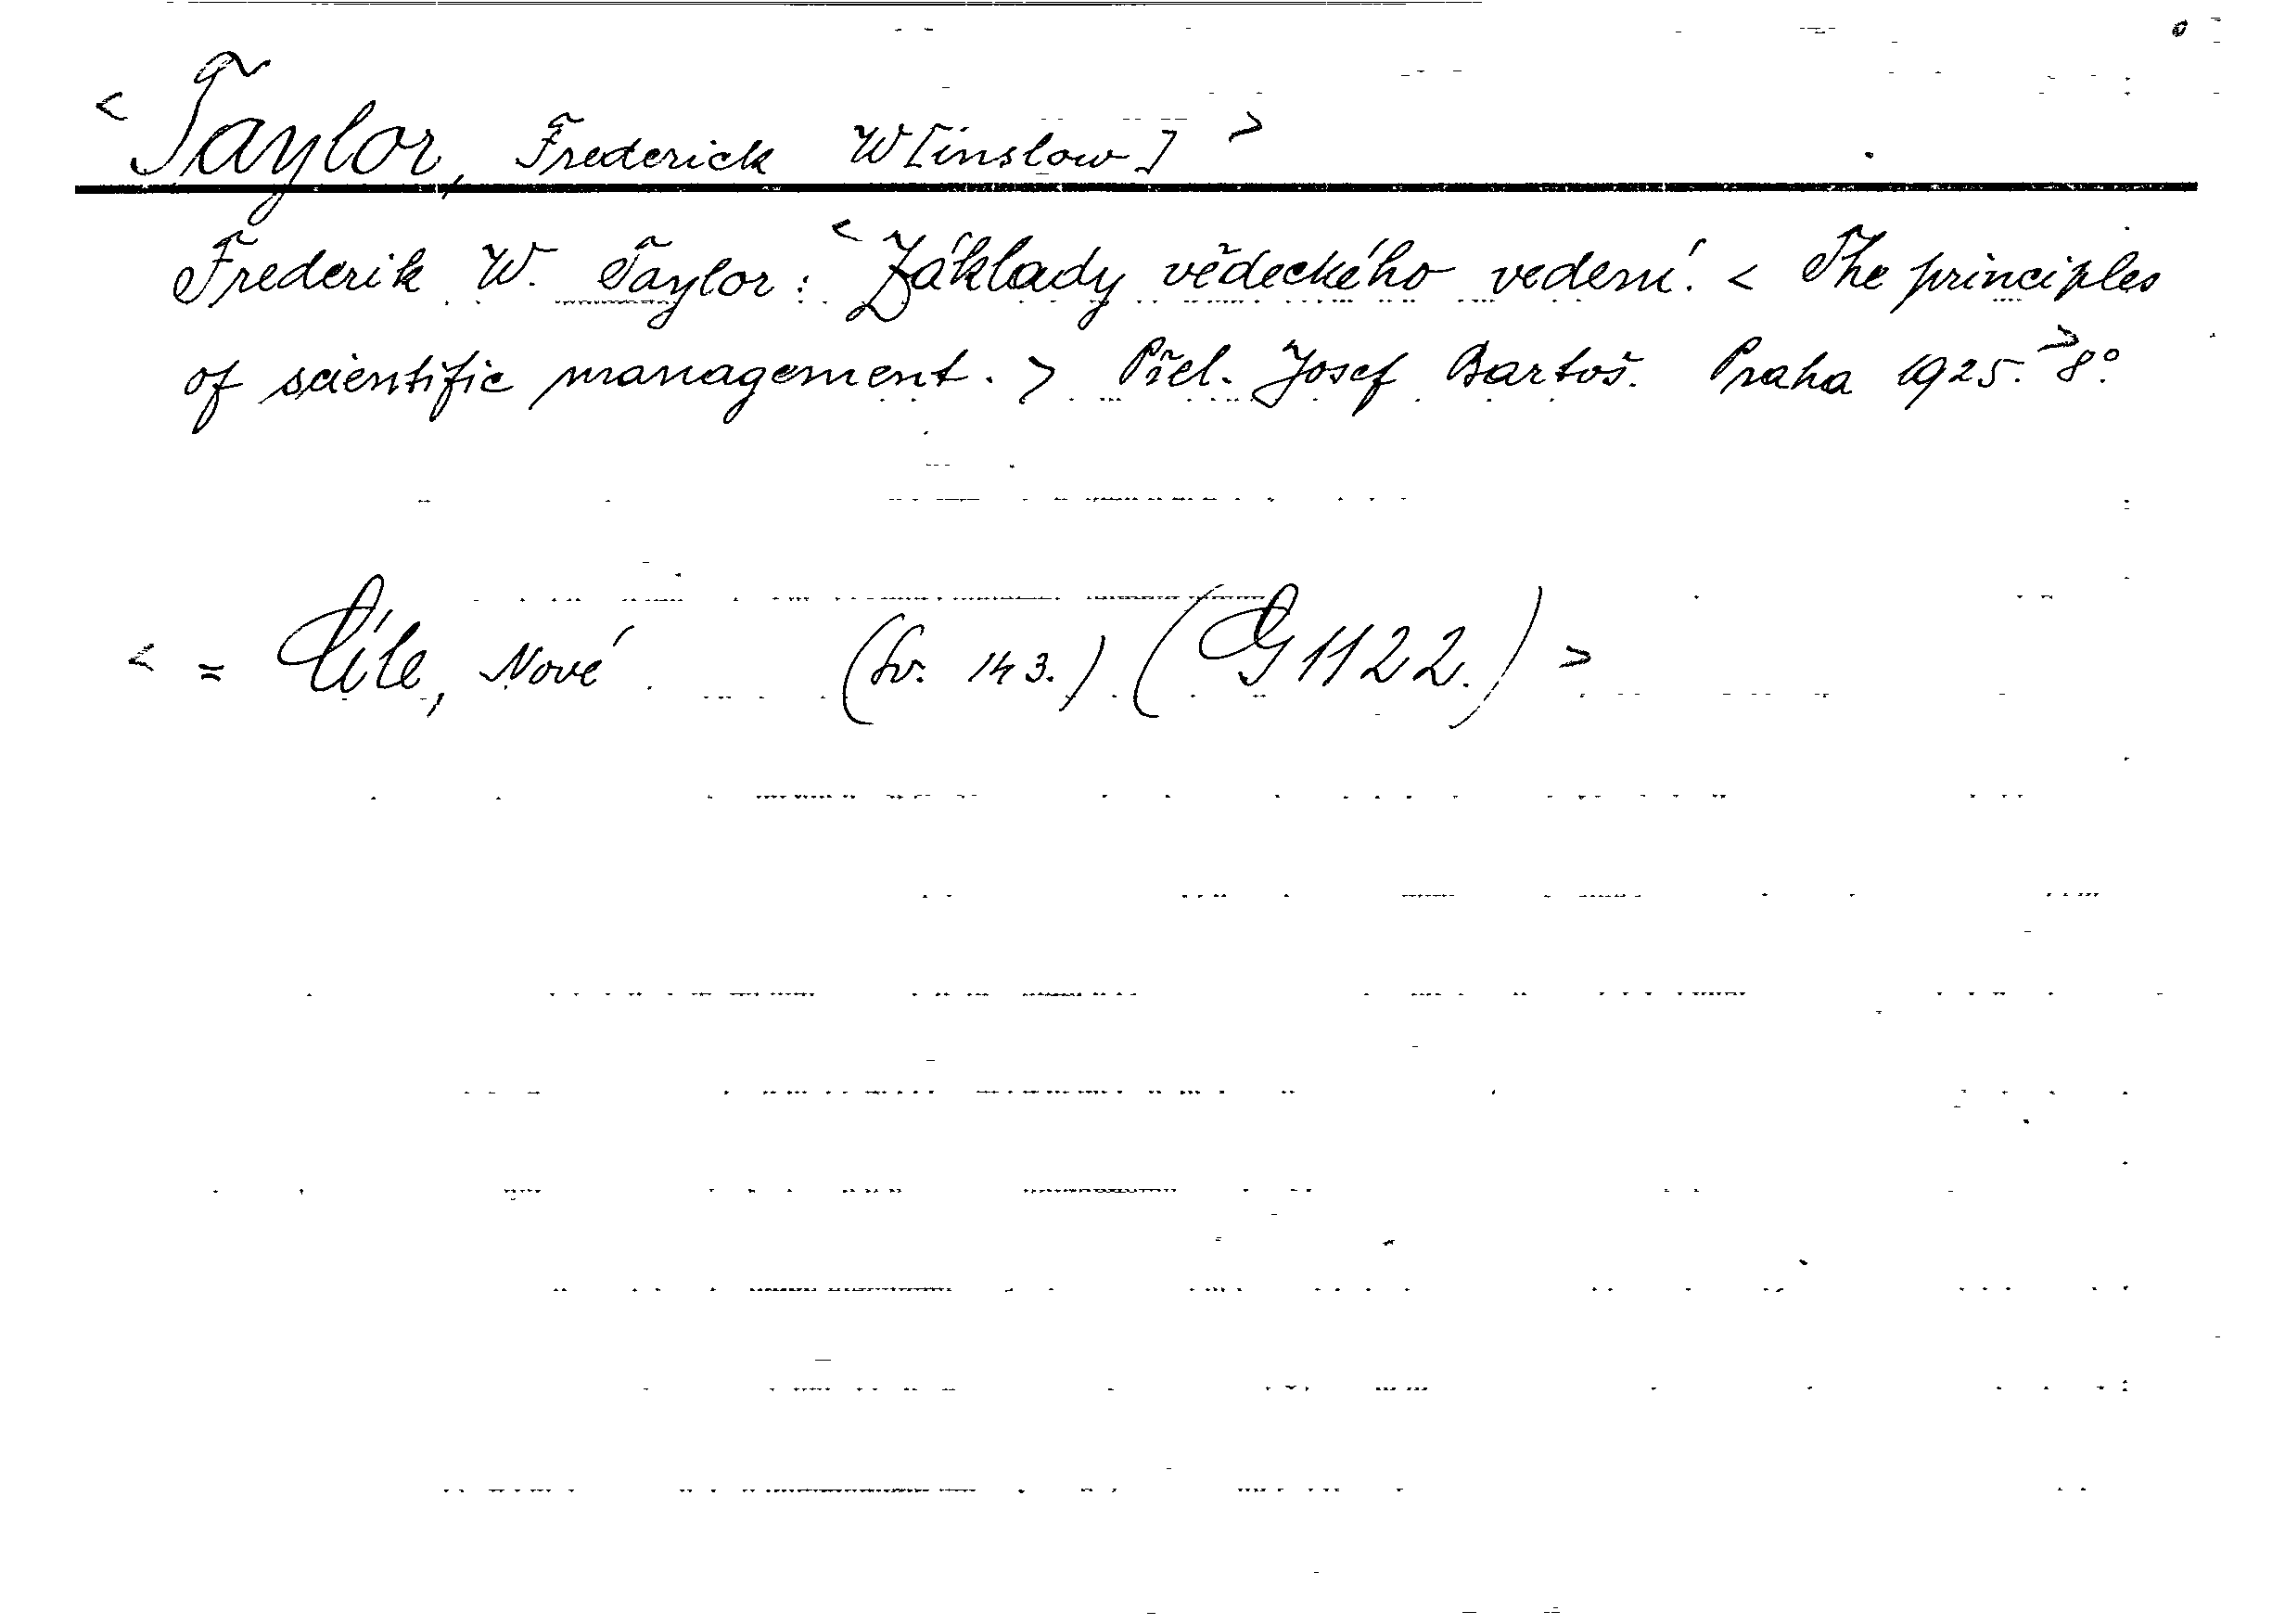 < Taylor, Frederick W[inslow] >
Frederik W. Taylor: < Základy vědeckého vedení. < The principles
of scientific management. > Přel. Josef Bartoš. Praha 1925. > 8°.
< = Cíle, Nové (Sv. 143.) (G 1122.) >